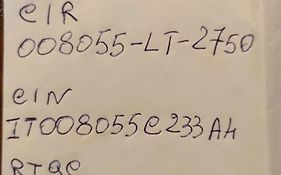 CIR
008055-LT-2750
CIN
IT008055C233A4
RTQC